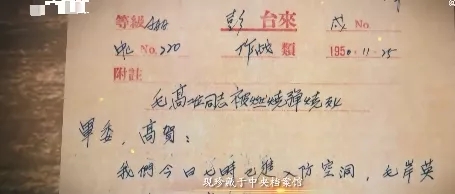 等級 彭台來 戌 No.
电 No. 220 作战類 1950.11.25
附註
毛高㘯同志被燃燒弹燒死
軍委,高賀:
我們今日七時已進入防空洞,毛岸英
现珍藏于中央档案馆